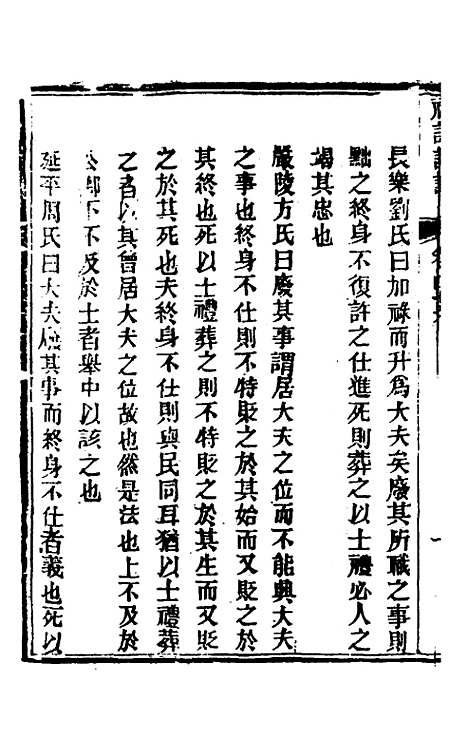 長樂劉氏曰加祿而升爲大夫矣廢其所職之事則
黜之終身不復許之仕進死則葬之以士禮必人之
竭其忠也
嚴陵方氏曰廢其事謂居大夫之位而不能興大夫
之事也終身不仕則不特貶之於其始而又貶之於
其終也死以士禮葬之則不特貶之於其生而又貶
之於其死也夫終身不仕則與民同耳猶以士禮葬
之者以其曾居大夫之位故也然是法也上不及於
公卿下不及於士者舉中以該之也
延平周氏曰大夫廢其事而終身不仕者義也死以